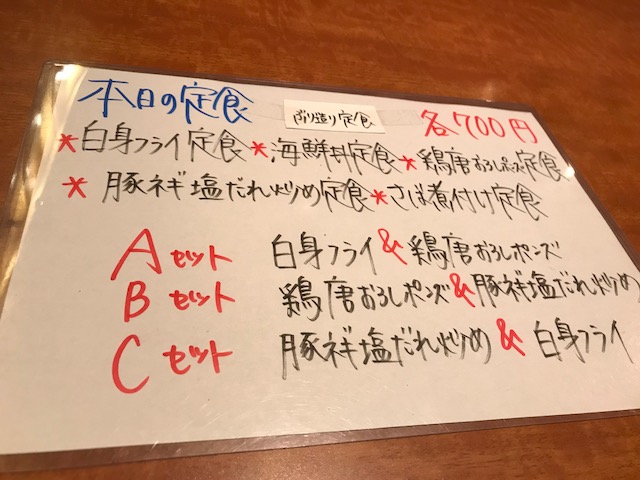 本日の定食 ぶり造り定食 各700円
*白身フライ定食*海鮮丼定食*鶏唐おろしポンズ定食
*豚ネギ塩だれ炒め定食*さば煮付け定食
Aセット 白身フライ&鶏唐おろしポンズ
Bセット 鶏唐おろしポンズ&豚ネギ塩だれ炒め
Cセット 豚ネギ塩だれ炒め&白身フライ